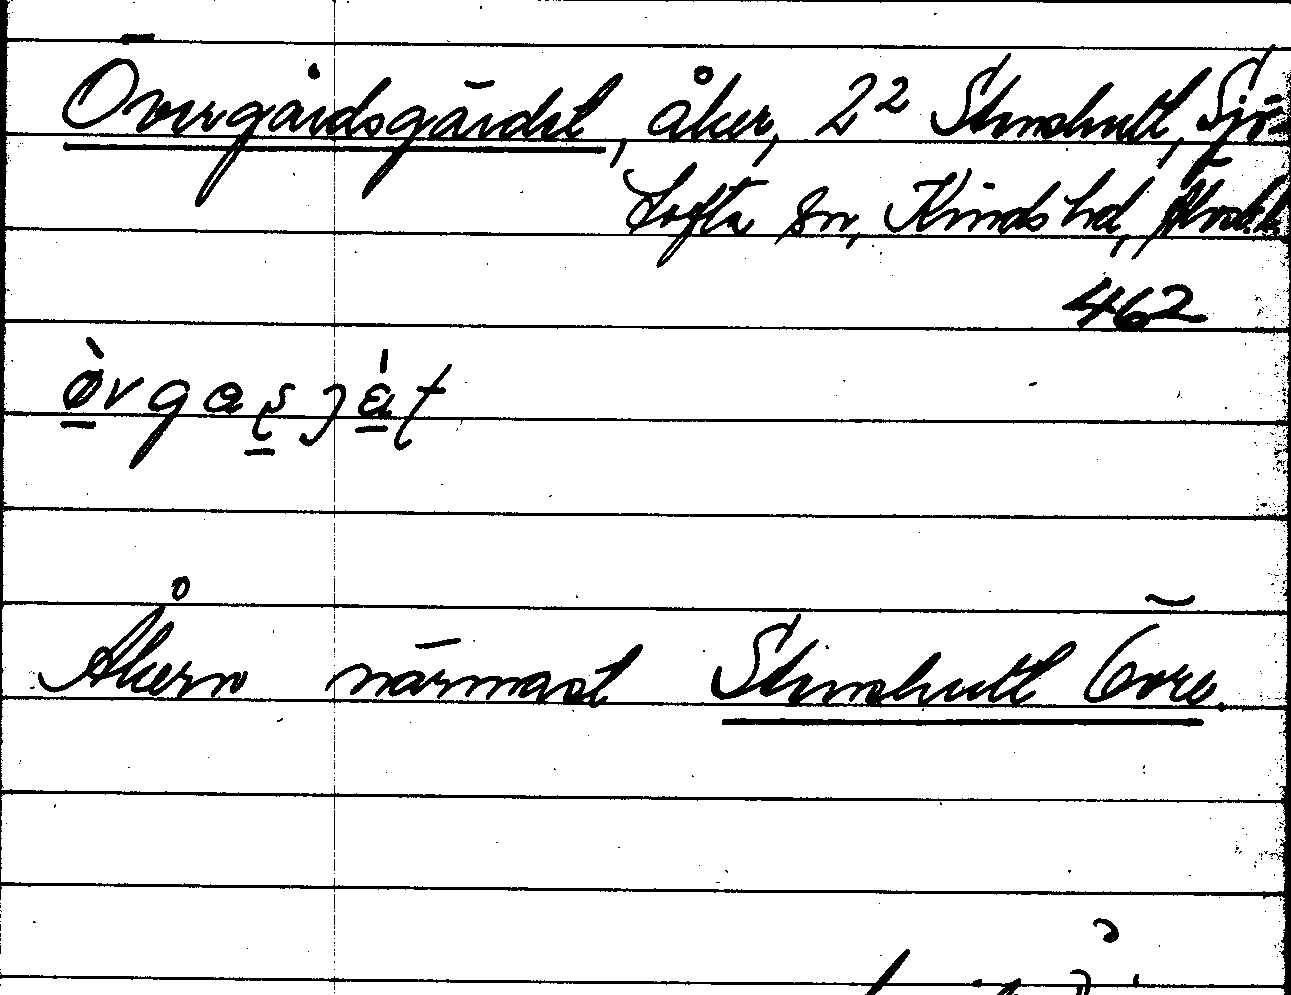 Övergårdsgärdet, åker, 2² Stenshult, Sjö-
tofta sn, Kinds hd,
462
Åkern närmast Stenshult Övre.